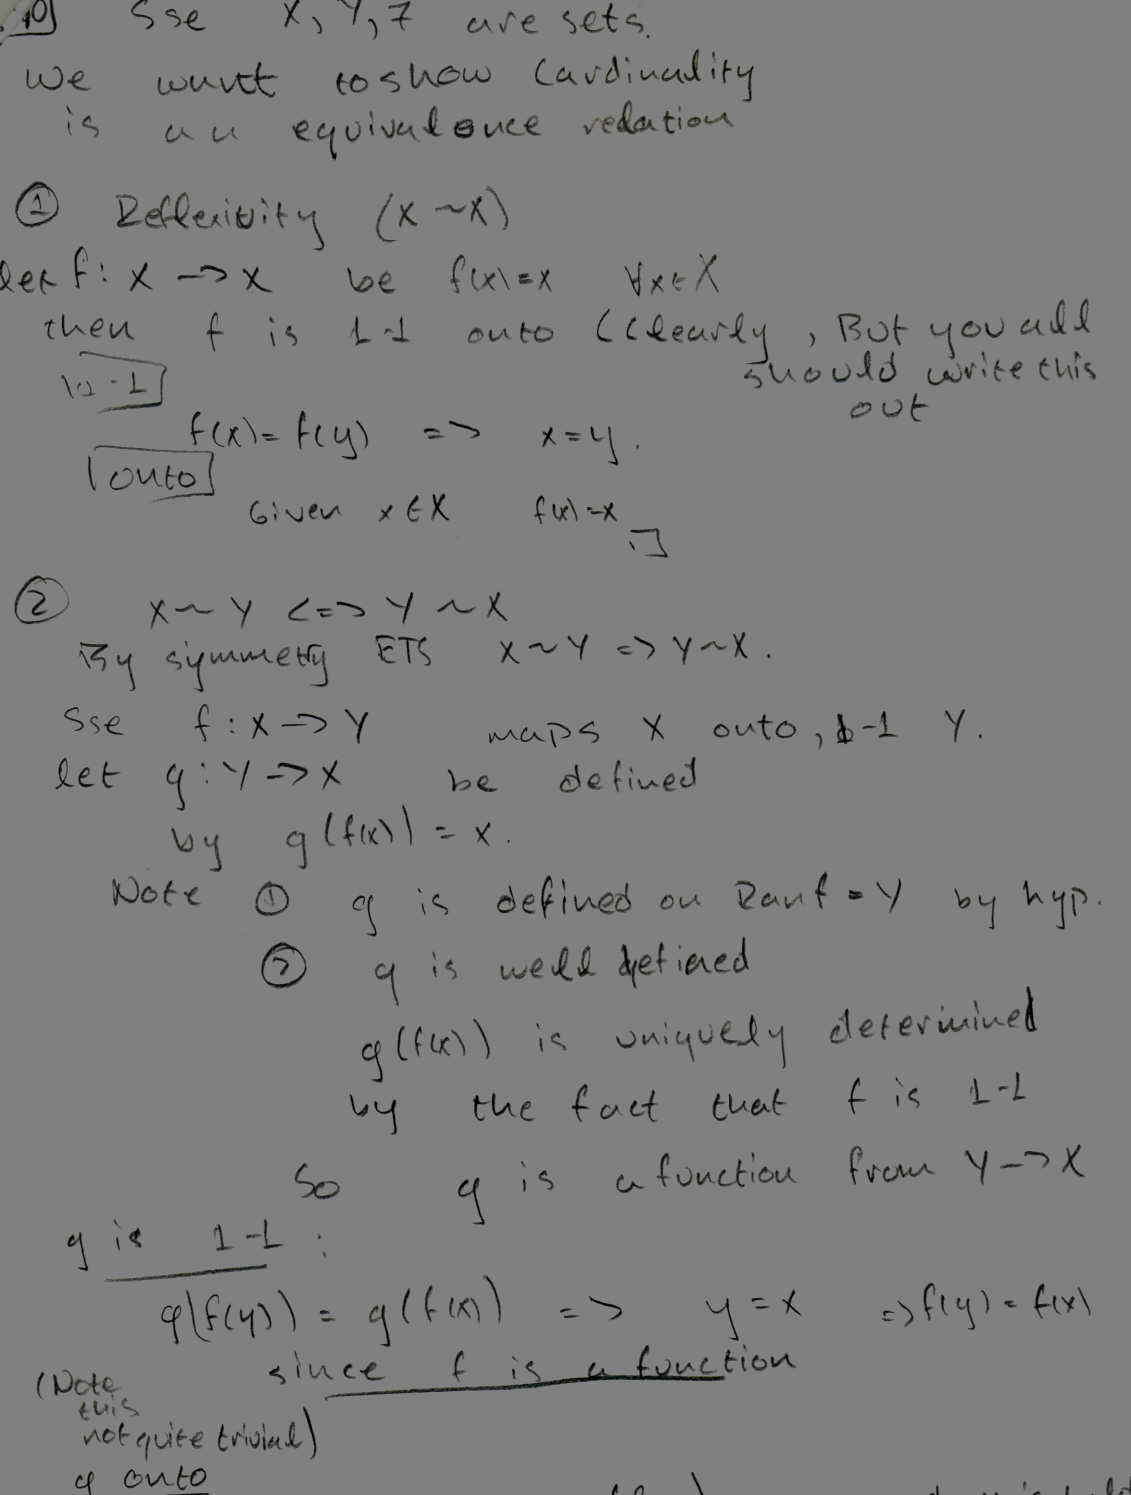 10] Sse X, Y, Z are sets.
We want to show Cardinality
is an equivalence relation
① Reflexivity (X ~ X)
let f: X -> X be f(x)=x ∀x∈X
then f is 1-1 onto (Clearly, But you all
should write this
out
1-1
f(x)=f(y) => x=y.
onto
Given x ∈ X f(x)=x
② X ~ Y <=> Y ~ X
By symmetry ETS X ~ Y => Y ~ X.
Sse f: X -> Y maps X onto, 1-1 Y.
let g: Y -> X be defined
by g(f(x)) = x.
Note ① g is defined on Ran f = Y by hyp.
② g is well defined
g(f(x)) is uniquely determined
by the fact that f is 1-1
So g is a function from Y -> X
g is 1-1 :
g(f(y)) = g(f(x)) => y=x => f(y) = f(x)
since f is a function
(Note
this
not quite trivial)
g onto